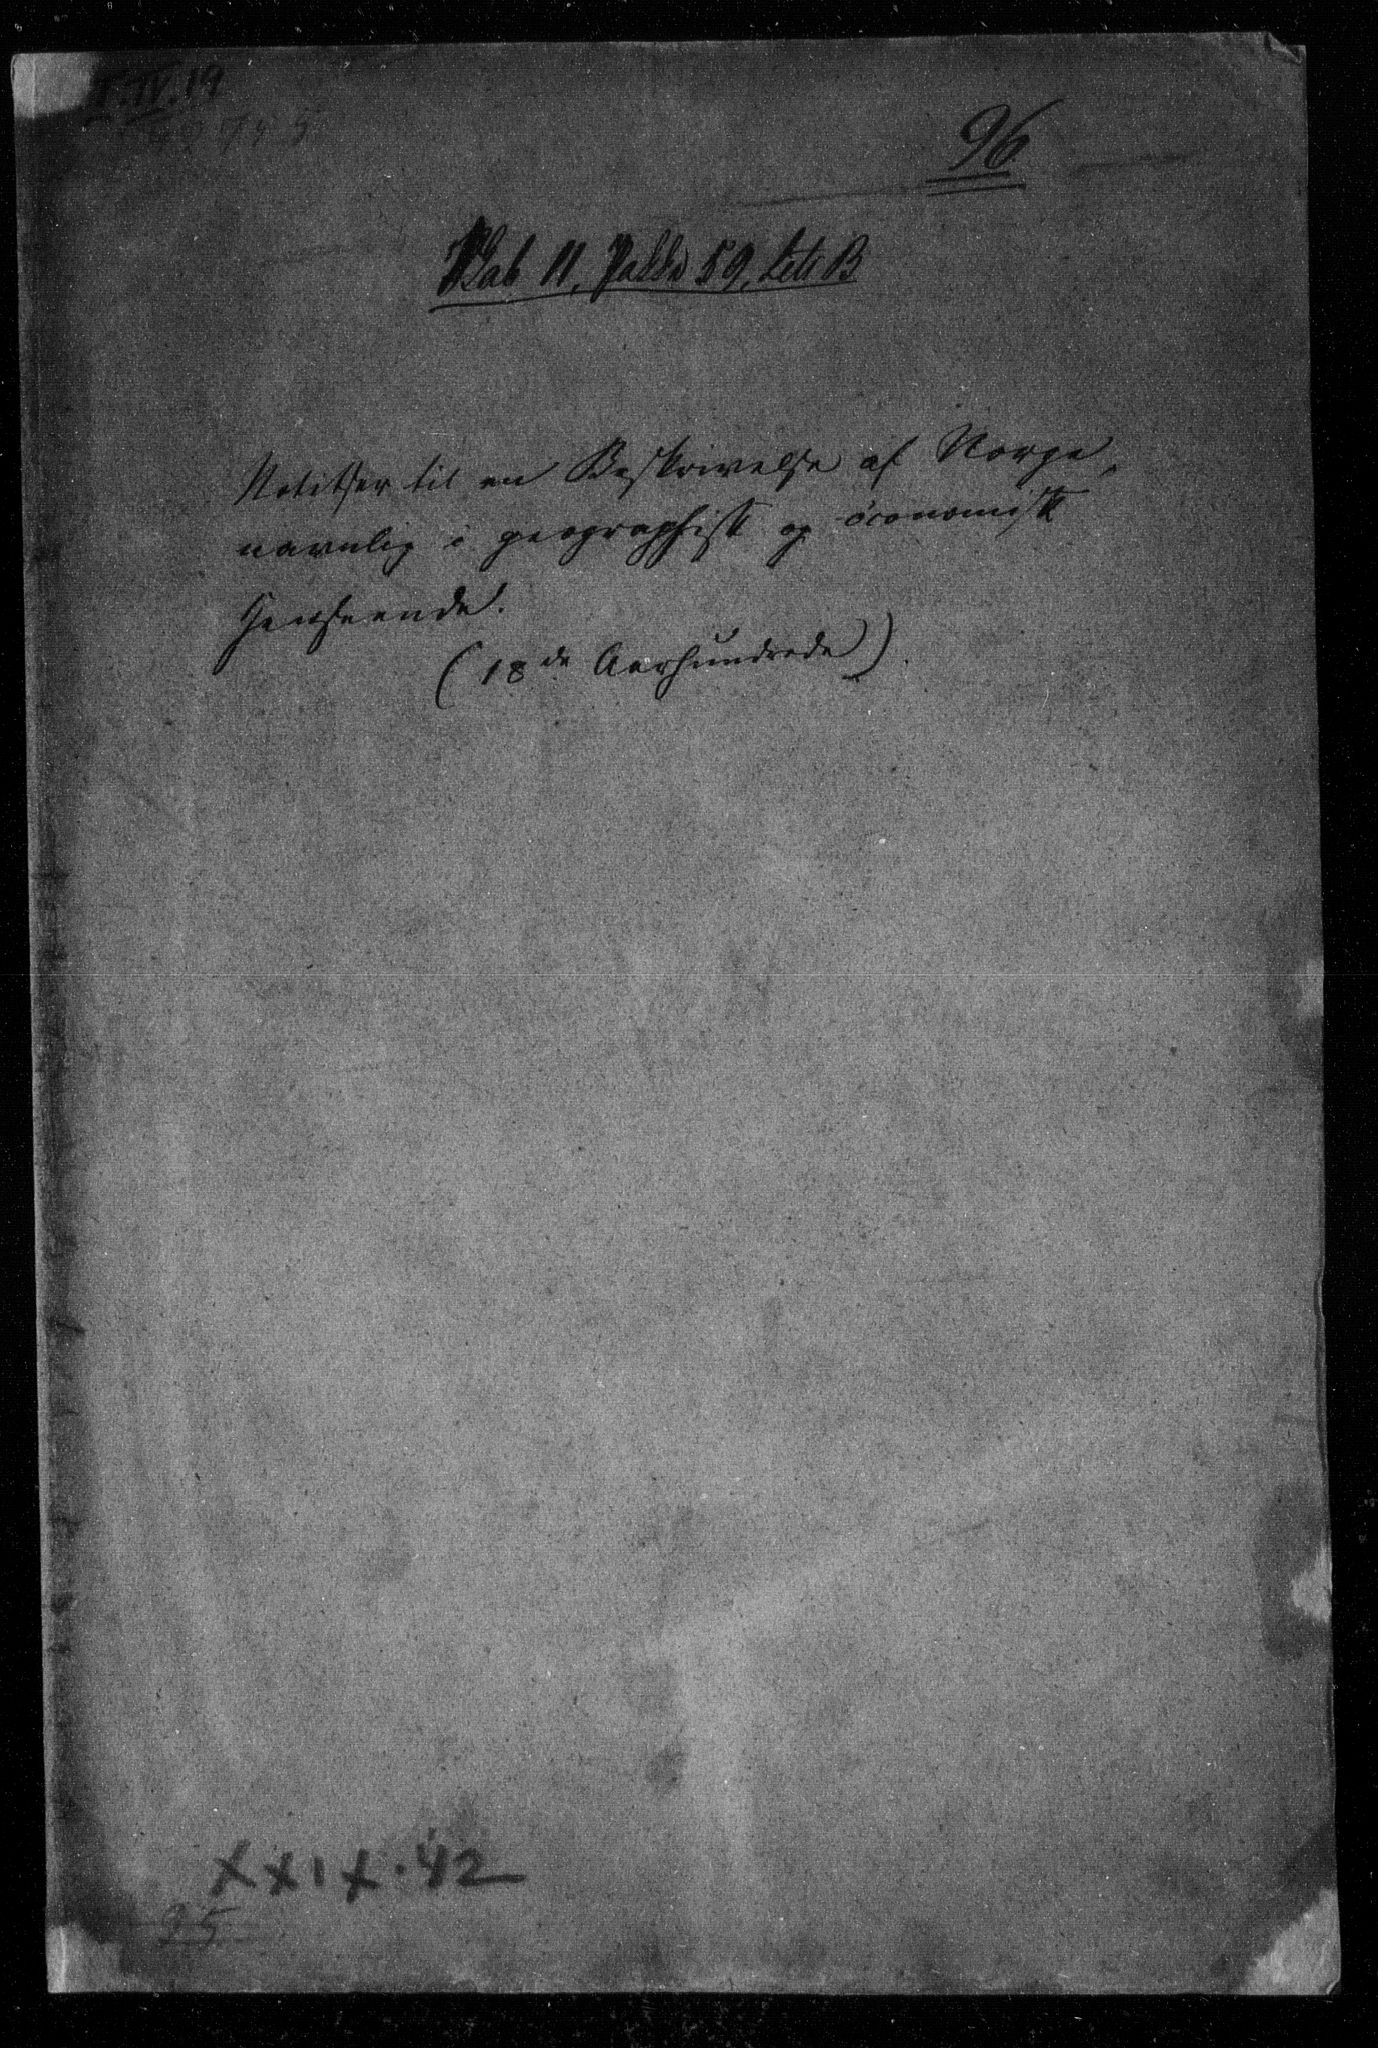 IV.19
96
Skab 11, Pakke 59, Litr B
Notitser til en Beskrivelse af Norge,
navnlig i geographisk og öconomisk
Henseende.
(18de Aarhundrede).
XXIX.42
95